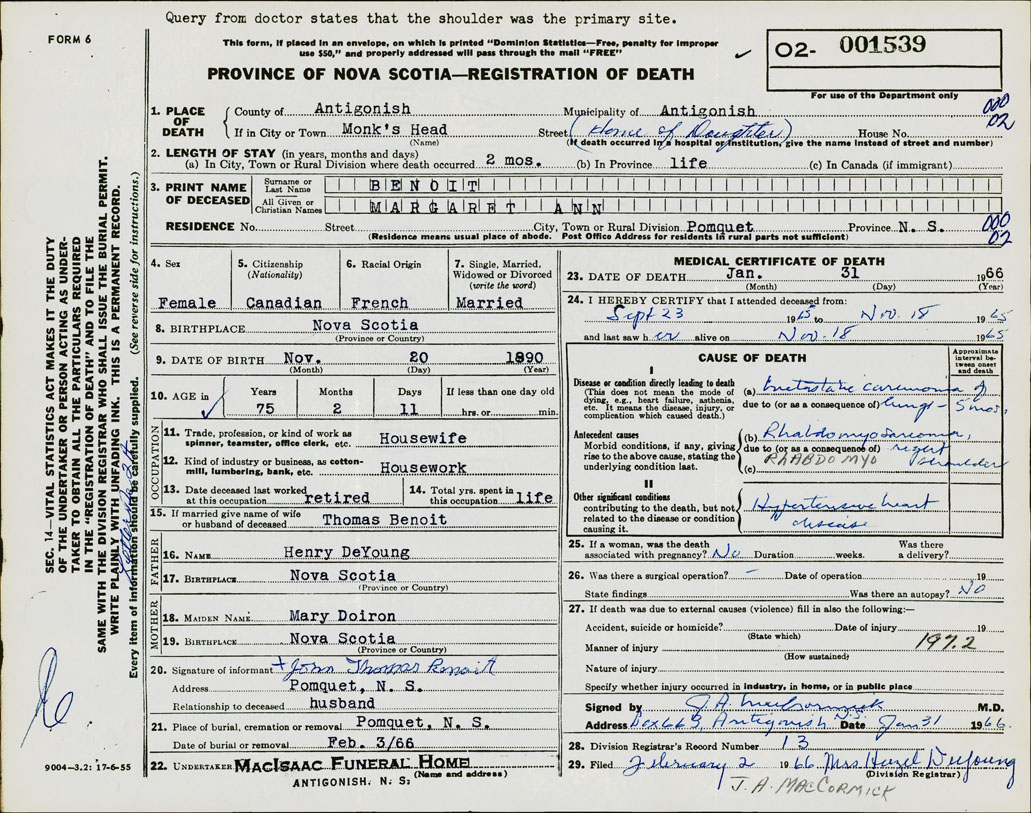 Query from doctor states that the shoulder was the primary site.
FORM 6
This form, if placed in an envelope, on which is printed "Dominion Statistics—Free, penalty for improper
use $50," and properly addressed will pass through the mail "FREE"
O2- 001539
PROVINCE OF NOVA SCOTIA—REGISTRATION OF DEATH
For use of the Department only
1. PLACE OF DEATH
County of Antigonish Municipality of Antigonish 000
If in City or Town Monk's Head Street (Home of Daughter) House No. 02
(Name) (If death occurred in a hospital or institution, give the name instead of street and number)
2. LENGTH OF STAY (in years, months and days)
(a) In City, Town or Rural Division where death occurred 2 mos. (b) In Province life (c) In Canada (if immigrant)
3. PRINT NAME OF DECEASED
Surname or Last Name BENOIT
All Given or Christian Names MARGARET ANN
RESIDENCE No. Street City, Town or Rural Division Pomquet Province N. S. 000
(Residence means usual place of abode. Post Office Address for residents in rural parts not sufficient) 02
4. Sex Female
5. Citizenship (Nationality) Canadian
6. Racial Origin French
7. Single, Married, Widowed or Divorced (write the word) Married
8. BIRTHPLACE Nova Scotia
(Province or Country)
9. DATE OF BIRTH Nov. 20 1890
(Month) (Day) (Year)
10. AGE in Years Months Days If less than one day old
75 2 11 hrs. or min.
OCCUPATION
11. Trade, profession, or kind of work as spinner, teamster, office clerk, etc. Housewife
12. Kind of industry or business, as cotton-mill, lumbering, bank, etc. Housework
13. Date deceased last worked at this occupation retired
14. Total yrs. spent in this occupation life
15. If married give name of wife or husband of deceased Thomas Benoit
FATHER
16. NAME Henry DeYoung
17. BIRTHPLACE Nova Scotia
(Province or Country)
MOTHER
18. MAIDEN NAME Mary Doiron
19. BIRTHPLACE Nova Scotia
(Province or Country)
20. Signature of informant + John Thomas Benoit
Address Pomquet, N. S.
Relationship to deceased husband
21. Place of burial, cremation or removal Pomquet, N. S.
Date of burial or removal Feb. 3/66
22. UNDERTAKER MACISAAC FUNERAL HOME
(Name and address)
ANTIGONISH, N. S.
MEDICAL CERTIFICATE OF DEATH
23. DATE OF DEATH Jan. 31 1966
(Month) (Day) (Year)
24. I HEREBY CERTIFY that I attended deceased from:
Sept 23 1965 to Nov. 18 1965
and last saw her alive on Nov. 18 1965
CAUSE OF DEATH
Approximate interval between onset and death
I
Disease or condition directly leading to death
(This does not mean the mode of dying, e.g., heart failure, asthenia, etc. It means the disease, injury, or complication which caused death.)
(a) metastatic carcinoma of
due to (or as a consequence of) lungs - 5 mos.
Antecedent causes
Morbid conditions, if any, giving rise to the above cause, stating the underlying condition last.
(b) Rhabdomyosarcoma,
due to (or as a consequence of) right
(c) RHABDOMYO shoulder
II
Other significant conditions
contributing to the death, but not related to the disease or condition causing it.
Hypertensive heart
disease
25. If a woman, was the death associated with pregnancy? No Duration weeks. Was there a delivery?
26. Was there a surgical operation? – Date of operation 19
State findings Was there an autopsy? No
27. If death was due to external causes (violence) fill in also the following:—
Accident, suicide or homicide? Date of injury 19
(State which)
Manner of injury 197.2
(How sustained)
Nature of injury
Specify whether injury occurred in industry, in home, or in public place
Signed by J.A. MacCormick M.D.
Address Box 663, Antigonish N.S. Date Jan 31 1966
28. Division Registrar's Record Number 13
29. Filed February 2 1966 Mrs Hazel DeYoung
(Division Registrar)
J. A. MACCORMICK
SEC. 14—VITAL STATISTICS ACT MAKES IT THE DUTY
OF THE UNDERTAKER OR PERSON ACTING AS UNDER-
TAKER TO OBTAIN ALL THE PARTICULARS REQUIRED
IN THE "REGISTRATION OF DEATH" AND TO FILE THE
SAME WITH THE DIVISION REGISTRAR WHO SHALL ISSUE THE BURIAL PERMIT.
WRITE PLAINLY WITH UNFADING INK. THIS IS A PERMANENT RECORD.
Every item of information should be carefully supplied. (See reverse side for instructions.)
9004-3.2: 17-6-55